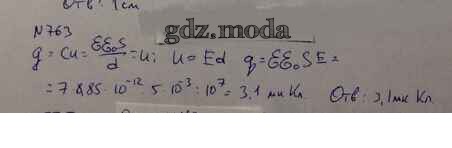 Отв: 1 см
N763
gdz.moda
q = Cu = εε₀S/d = u; u = Ed q = εε₀SE =
= 7·8,85·10⁻¹²·5·10⁻³·10⁷ = 3,1 мкКл. Отв: 3,1 мк Кл.